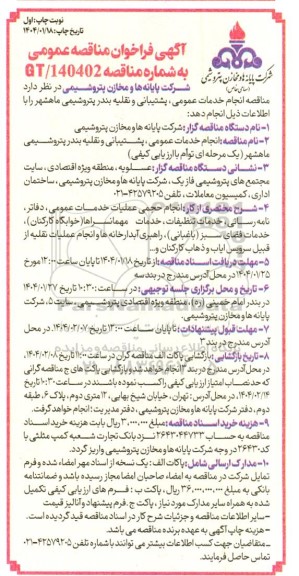 نوبت چاپ: اول
تاریخ چاپ: ۱۴۰۴/۰۱/۱۸
شرکت پایانه ها و مخازن پتروشیمی
(سهامی خاص)
آگهی فراخوان مناقصه عمومی
به شماره مناقصه GT/140402
شرکت پایانه ها و مخازن پتروشیمی در نظر دارد
مناقصه انجام خدمات عمومی، پشتیبانی و نقلیه بندر پتروشیمی ماهشهر را با
اطلاعات ذیل انجام دهد:
۱- نام دستگاه مناقصه گزار: شرکت پایانه ها و مخازن پتروشیمی
۲- نام مناقصه: انجام خدمات عمومی، پشتیبانی و نقلیه بندر پتروشیمی
ماهشهر (یک مرحله ای توأم با ارزیابی کیفی)
۳- نشانی دستگاه مناقصه گزار: عسلویه، منطقه ویژه اقتصادی، سایت
مجتمع های پتروشیمی فاز یک، شرکت پایانه ها و مخازن پتروشیمی، ساختمان
اداری، کمیسیون معاملات، تلفن ۴۲۵۷۹۲۰۵-۰۲۱
۴- شرح مختصری از کار: انجام حجمی عملیات خدمات عمومی، دفاتر،
نامه رسانی، خدمات تنظیفات، خدمات مهمانسراها (خوابگاه کارکنان)،
خدمات فضای سبز (باغبانی)، راهبری آبدارخانه ها و انجام عملیات نقلیه از
قبیل سرویس ایاب و ذهاب کارکنان و...
۵- مهلت دریافت اسناد مناقصه: از تاریخ ۱۴۰۴/۰۱/۱۸ تا پایان ساعت ۱۲:۰۰ مورخ
۱۴۰۴/۰۱/۲۵ در محل آدرس مندرج در بند سه
۶- تاریخ و محل برگزاری جلسه توجیهی: در ساعت ۱۰:۳۰ تاریخ ۱۴۰۴/۰۱/۲۷
در بندر امام خمینی (ره)، منطقه ویژه اقتصادی پتروشیمی، سایت ۵، شرکت
پایانه ها و مخازن پتروشیمی.
۷- مهلت قبول پیشنهادات: تا پایان ساعت ۱۲:۰۰ تاریخ ۱۴۰۴/۰۲/۰۷، در محل
آدرس مندرج در بند ۳
۸- تاریخ بازگشایی: بازگشایی پاکات الف مناقصه گران در ساعت ۱۰:۰۰ تاریخ ۱۴۰۴/۰۲/۰۸،
در محل آدرس مندرج در بند ۳ انجام خواهد شد و بازگشایی پاکت های ج مناقصه گرانی
که حد نصاب امتیاز ارزیابی کیفی را کسب نموده باشند در ساعت ۱۰:۳۰ تاریخ
۱۴۰۴/۰۲/۱۴، در محل آدرس: تهران، خیابان شیخ بهایی، ۱۲ متری دوم، پلاک ۶، طبقه
دوم، دفتر شرکت پایانه ها و مخازن پتروشیمی، دفتر مدیریت؛ انجام خواهد گرفت.
۹- هزینه خرید اسناد مناقصه: مبلغ ۳,۰۰۰,۰۰۰ ریال بابت هزینه خرید اسناد
مناقصه به حساب ۲۶۴۳۰۴۴۷۳۳ نزد بانک تجارت شعبه کمپ مثلثی با
کد ۲۶۴۳۰ در وجه شرکت پایانه ها و مخازن پتروشیمی واریز گردد.
۱۰- مدارک ارسالی شامل: پاکات الف: یک نسخه از اسناد مهر امضاء شده و فرم
تمایل شرکت در مناقصه به امضاء صاحبان امضا مجاز رسیده باشد و ضمانتنامه
بانکی به مبلغ ۳۶,۰۰۰,۰۰۰,۰۰۰ ریال، پاکت ب: فرم های ارزیابی کیفی تکمیل
شده به همراه سایر مدارک مورد نیاز، پاکت ج: فرم پیشنهاد و آنالیز قیمت
-سایر اطلاعات مناقصه و جزئیات شرح کار در اسناد مناقصه قید گردیده است.
- هزینه چاپ آگهی به عهده برنده مناقصه می باشد.
- متقاضیان جهت کسب اطلاعات بیشتر می توانند با شماره تلفن ۴۲۵۷۹۲۰۵-۰۲۱
تماس حاصل فرمایند.